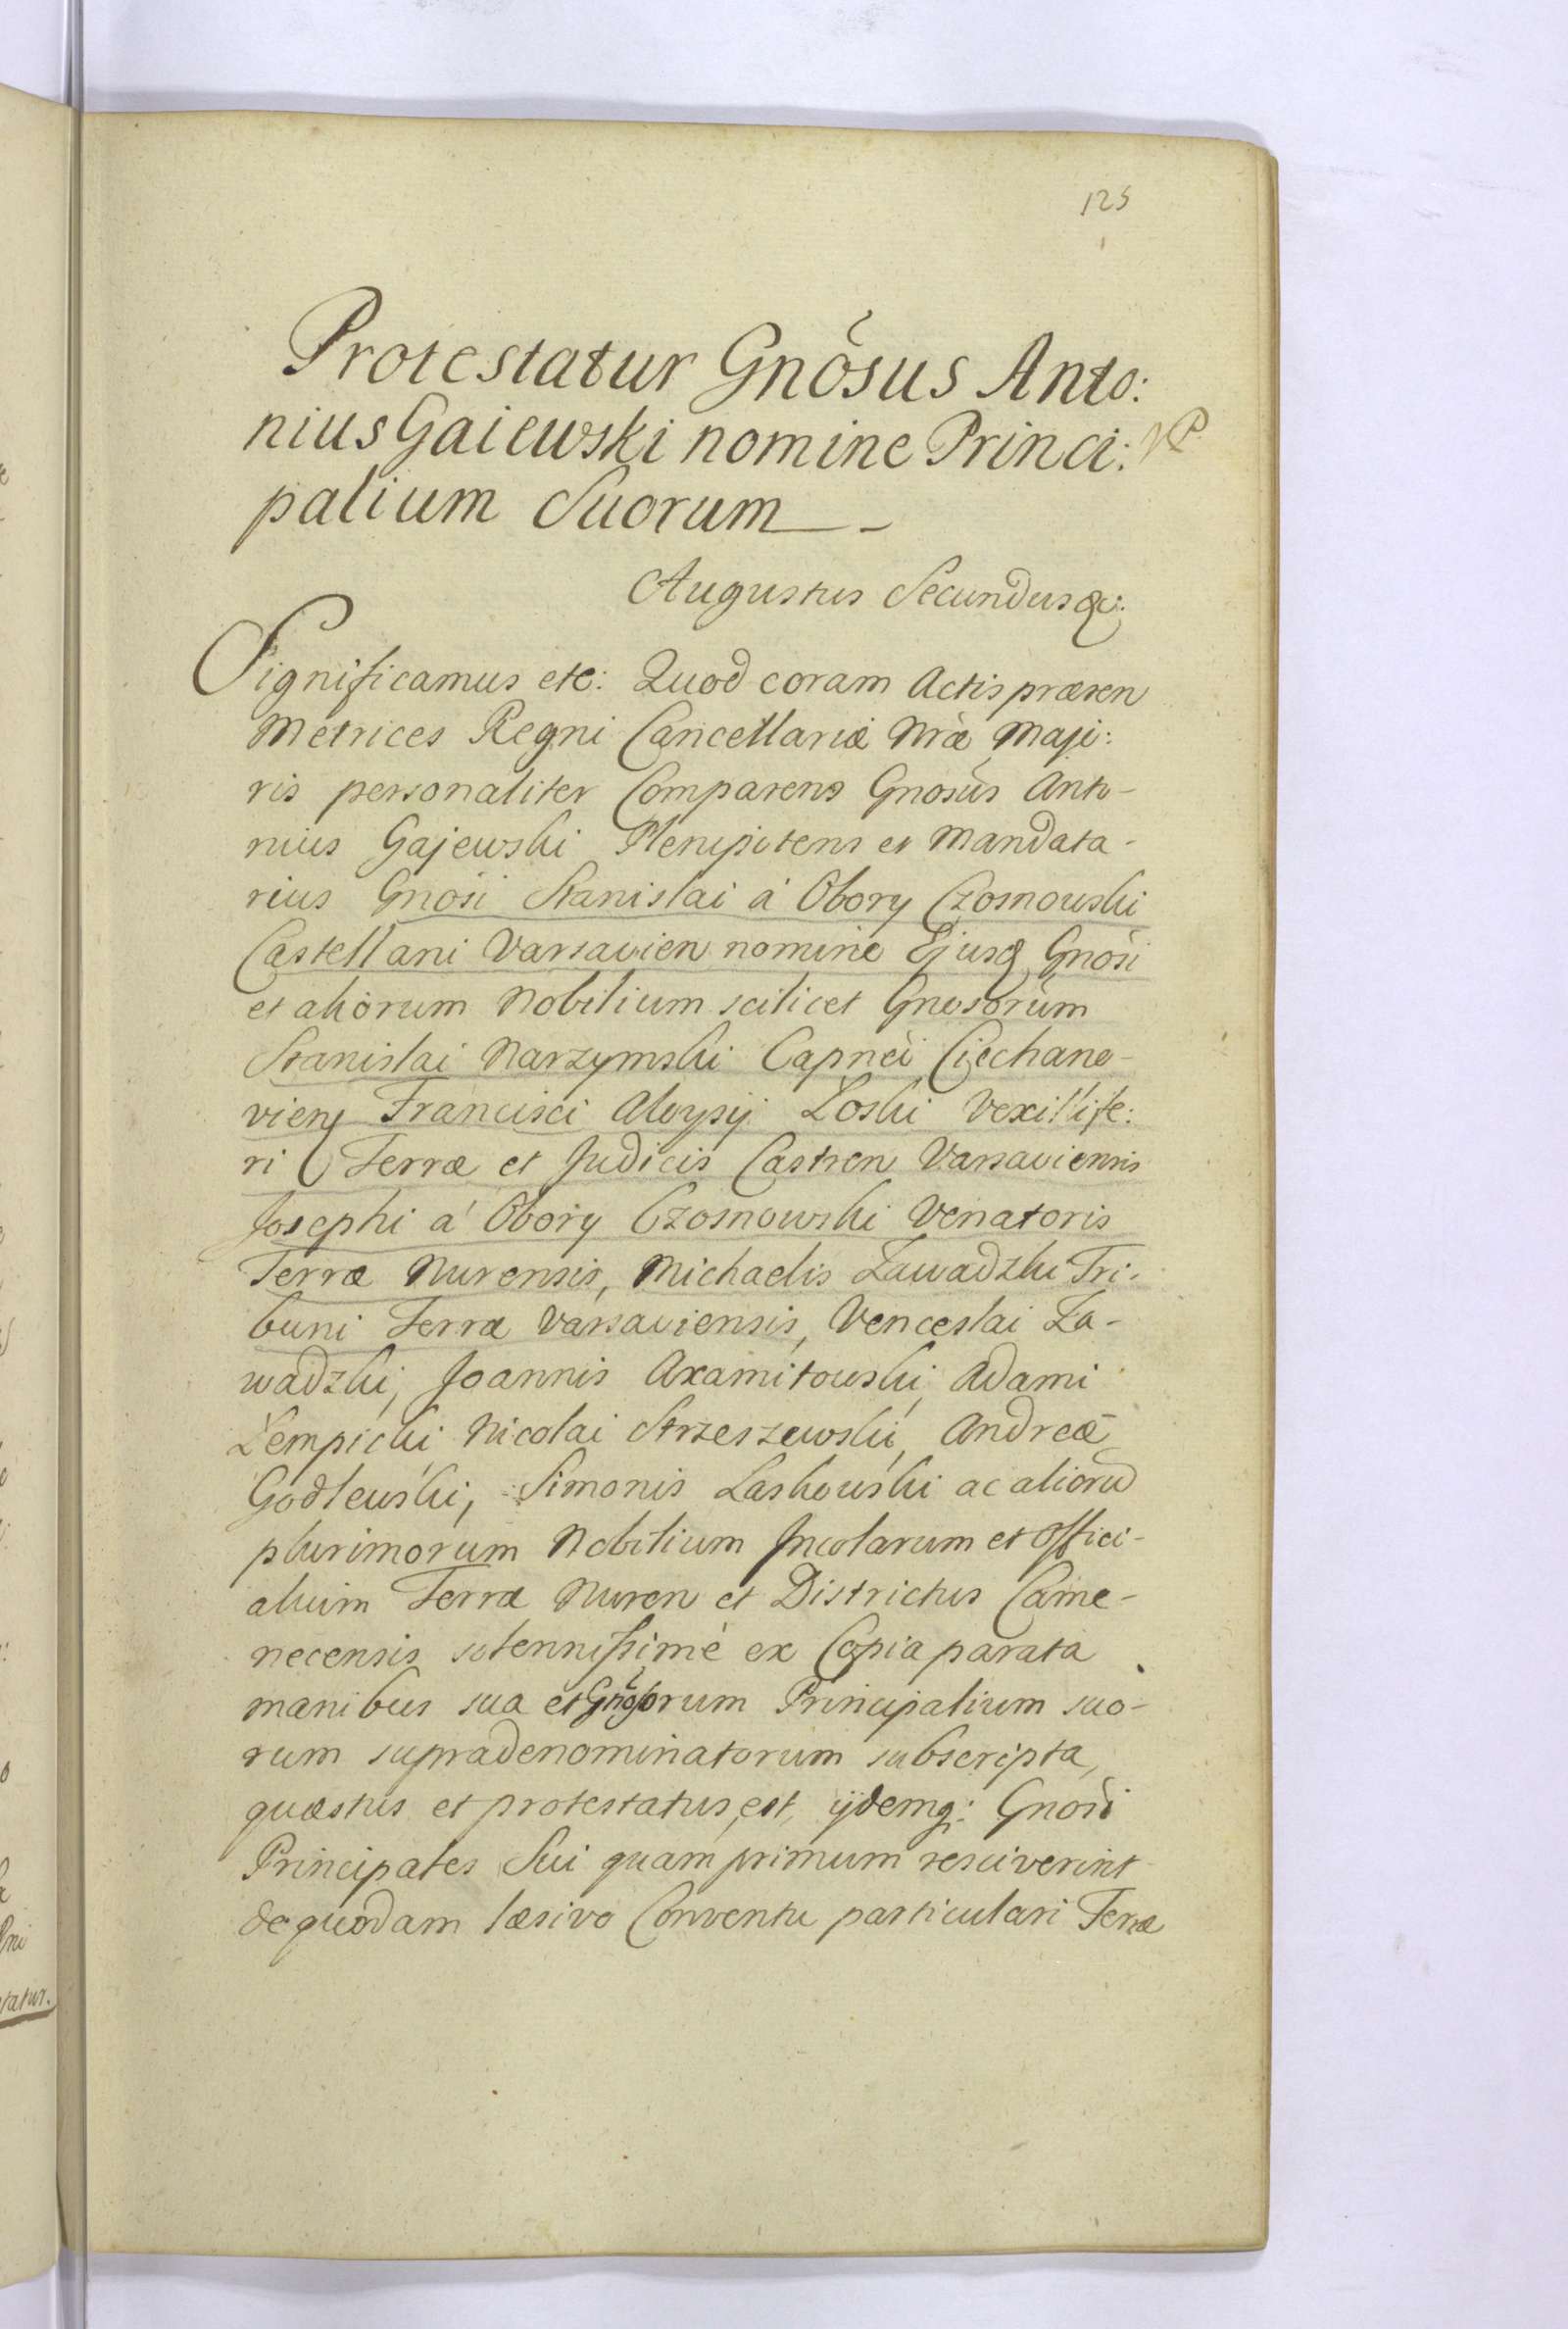 125
Protestatur Gnõsus Anto:
nius Gaiewski nomine Princi:
palium Suorum
Augustus Secundus &c:
Significamus etc: Quod coram Actis præsen
Metrices Regni Cancellariæ Nræ Maji:
ris personaliter Comparens Gnosùs Anto-
nius Gajewski Plenipotens et Mandata-
rius Gnosi Stanislai á Obory Czosnowski
Castellani Varsavien nomine Ejusq Gnosi
et aliorum Nobilium scilicet Gnosorum
Stanislai Narzymski Capnei Ciechano-
vien Francisci Aloysij Łoski Vexillife:
ri Terræ et Judicis Castren Varsaviensis
Josephi á Obory Czosnowski Venatoris
Terræ Nurensis, Michaelis Zawadzki Tri-
buni Terræ Varsaviensis, Venceslai Za-
wadzki, Joannis Axamitowski, Adami
Łempicki Nicolai Strzeszewski, Andreæ
Godlewski, Simonis Laskowski ac aliorũ
plurimorum Nobilium Incolarum et Offici-
alium Terræ Nuren et Districtus Came-
necensis solennissimè ex Copia parata
manibus sua et Gnosorum Principalium suo-
rum supradenominatorum subscripta,
quæstus et protestatus, est, ijdemq: Gnosi
Principales Sui quam primum resciverint
de quodam læsivo Conventu particulari Terræ